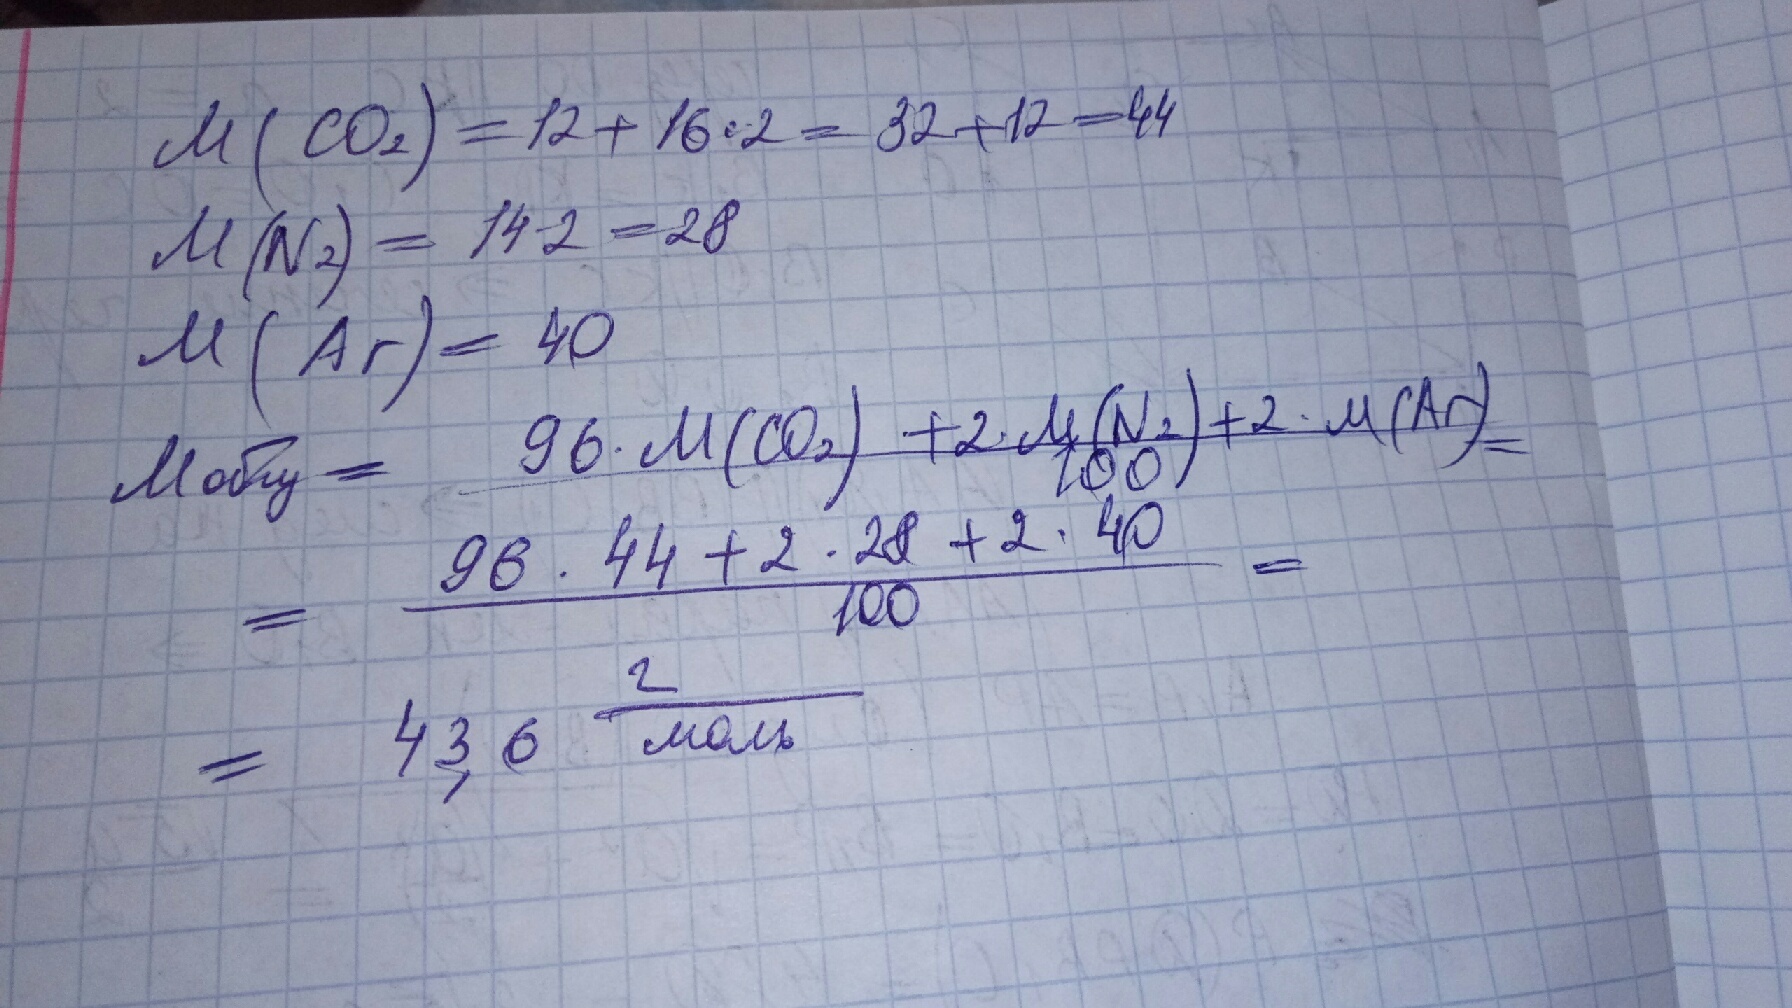 М(CO₂) = 12 + 16·2 = 32 + 12 = 44
М(N₂) = 14·2 = 28
М(Ar) = 40
Мобщ = 96·М(CO₂) + 2·М(N₂) + 2·М(Ar) =
100
= 96·44 + 2·28 + 2·40 =
100
= 43,6 г
моль